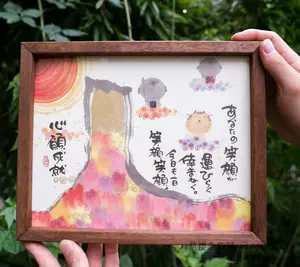 あなたの笑顔が
運ひらく
倖きなく。
今日も一日
笑顔笑顔
心願成就